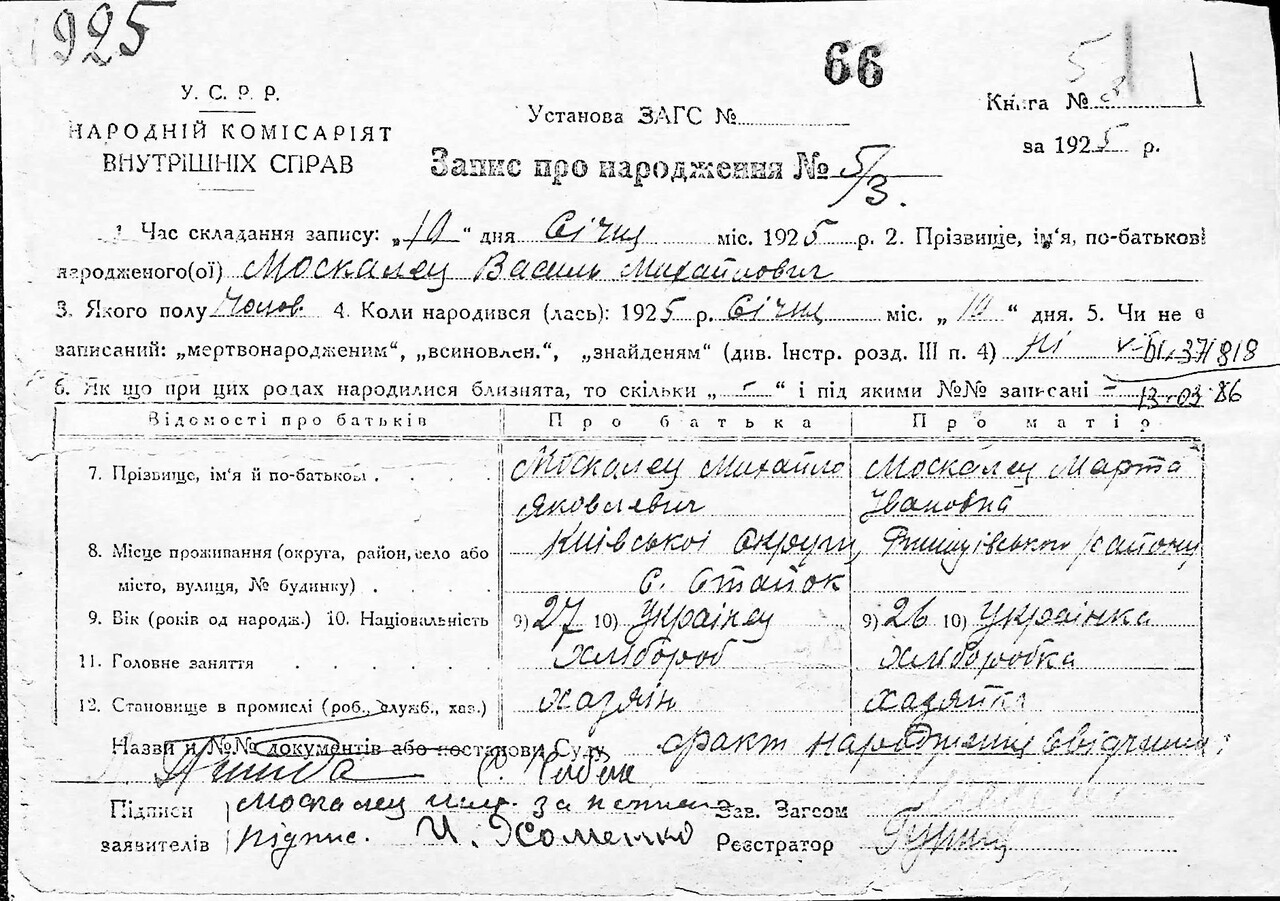 1925
66
У. С. Р. Р.
НАРОДНІЙ КОМІСАРІЯТ
ВНУТРІШНІХ СПРАВ
Установа ЗАГС №
Книга №
5
за 1925 р.
Запис про народження № 5/3.
1. Час складання запису: „10“ дня Січня міс. 1925 р. 2. Прізвище, ім‘я, по-батькові
народженого(ої) Москалец Василь Михайлович
3. Якого полу Чолов. 4. Коли народився (лась): 1925 р. Січня міс. „10“ дня. 5. Чи не є
записаний: „мертвонародженим“, „всиновлен.“, „знайденям“ (див. Інстр. розд. III п. 4) Ні
371818
6. Як що при цих родах народилися близнята, то скільки „-“ і під якими №№ записані -
13-03-86
Відомості про батьків Про батька Про матір
7. Прізвище, ім‘я й по-батькові Москалец Михайло Москалец Марта
Яковлевич Івановна
8. Місце проживання (округа, район, село або Київської округи, Ржищівського району
місто, вулиця, № будинку) с. Стайок
9. Вік (років од народж.) 10. Національність 9) 27 10) Українец 9) 26 10) Українка
11. Головне заняття Хлібороб Хліборобка
12. Становище в промислі (роб., служб., хаз.) хазяін хазяйка
Назви и №№ документів або постанови Суду факт народження
Підписи Москалец за
заявителів підпис. И. Хоменко
Зав. Загсом
Реєстратор